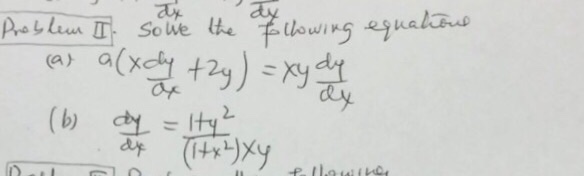 dx dx
Problem II. Solve the following equations
(a) a(x dy/dx + 2y) = xy dy/dx
(b) dy/dx = 1+y²/(1+x²)xy
following